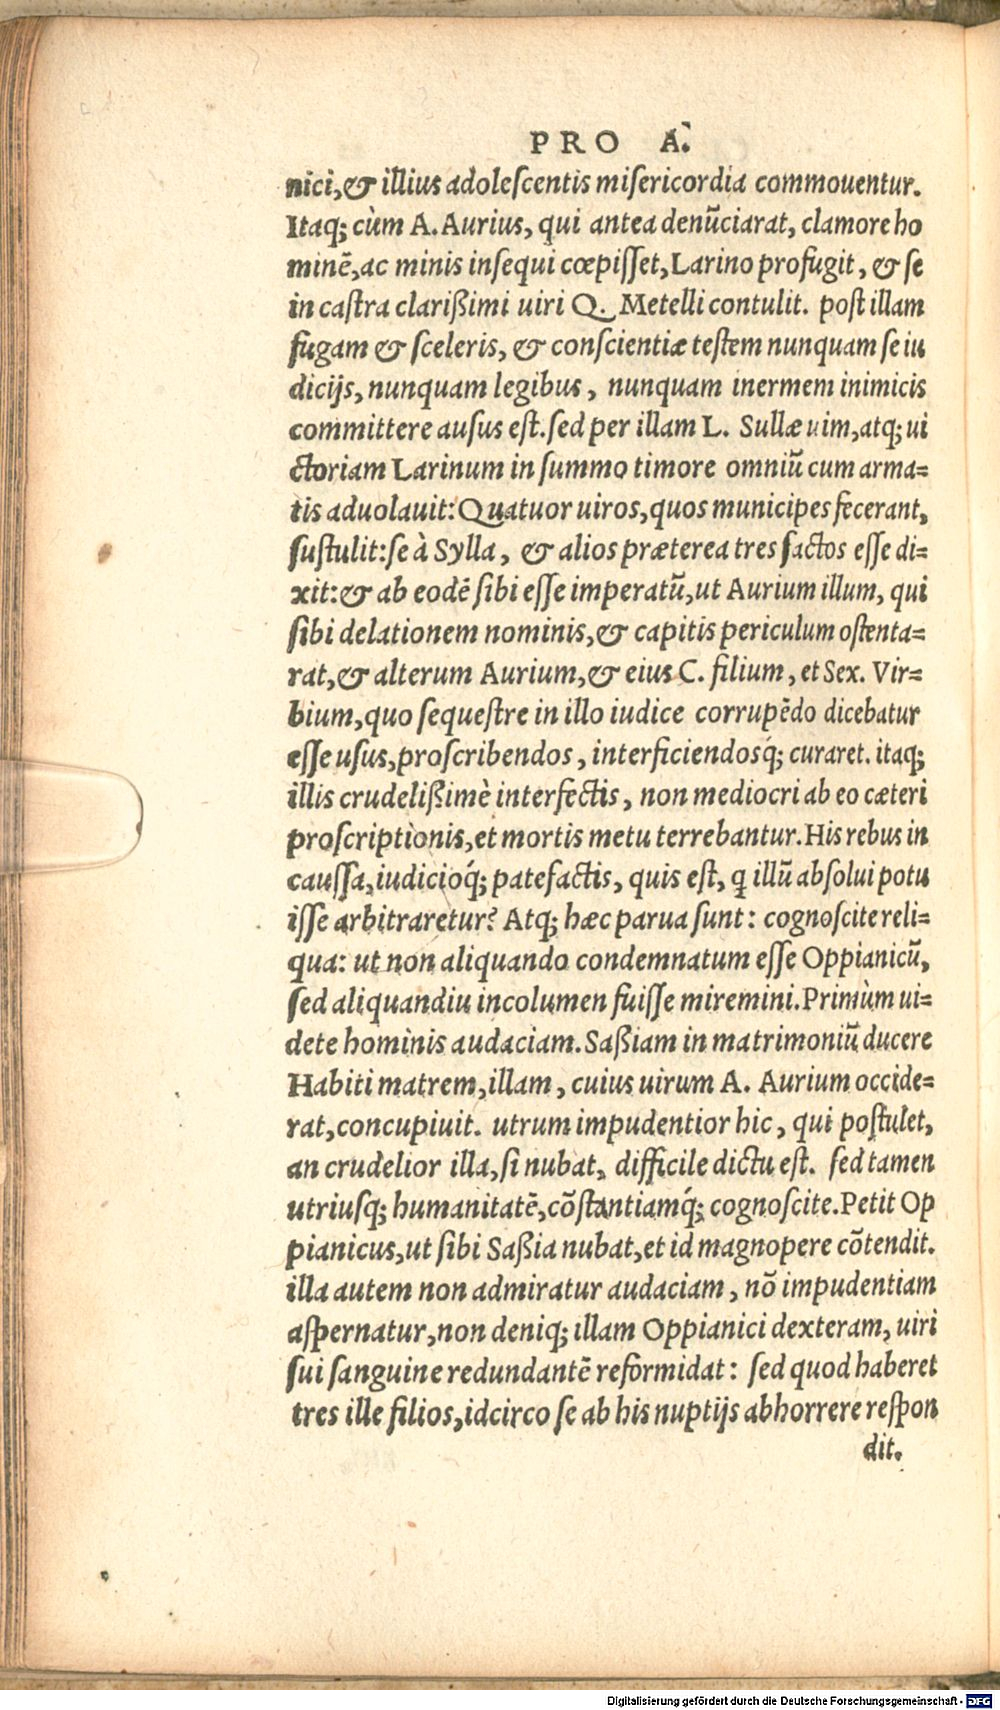 PRO A.
nici, & illius adolescentis misericordia commouentur.
Itaq; cùm A. Aurius, qui antea denũciarat, clamore ho
minẽ, ac minis insequi cœpisset, Larino profugit, & se
in castra clarißimi uiri Q. Metelli contulit. post illam
fugam & sceleris, & conscientiæ testem nunquam se iu
dicijs, nunquam legibus, nunquam inermem inimicis
committere ausus est. sed per illam L. Sullæ uim, atq; ui
ctoriam Larinum in summo timore omniũ cum arma=
tis aduolauit: Quatuor uiros, quos municipes fecerant,
sustulit: se à Sylla, & alios præterea tres factos esse di=
xit: & ab eodẽ sibi esse imperatũ, ut Aurium illum, qui
sibi delationem nominis, & capitis periculum ostenta=
rat, & alterum Aurium, & eius C. filium, et Sex. Vir=
bium, quo sequestre in illo iudice corrupẽdo dicebatur
esse usus, proscribendos, interficiendosq́; curaret. itaq;
illis crudelißimè interfectis, non mediocri ab eo cæteri
proscriptionis, et mortis metu terrebantur. His rebus in
caussa, iudicioq́; patefactis, quis est, q illũ absolui potu
isse arbitraretur? Atq; hæc parua sunt: cognoscite reli=
qua: ut non aliquando condemnatum esse Oppianicũ,
sed aliquandiu incolumen fuisse miremini. Primùm ui=
dete hominis audaciam. Saßiam in matrimoniũ ducere
Habiti matrem, illam, cuius uirum A. Aurium occide=
rat, concupiuit. utrum impudentior hic, qui postulet,
an crudelior illa, si nubat, difficile dictu est. sed tamen
utriusq; humanitatẽ, cõstantiamq́; cognoscite. Petit Op
pianicus, ut sibi Saßia nubat, et id magnopere cõtendit.
illa autem non admiratur audaciam, nõ impudentiam
aspernatur, non deniq; illam Oppianici dexteram, uiri
sui sanguine redundantẽ reformidat: sed quod haberet
tres ille filios, idcirco se ab his nuptijs abhorrere respon
dit.
Digitalisierung gefördert durch die Deutsche Forschungsgemeinschaft - DFG